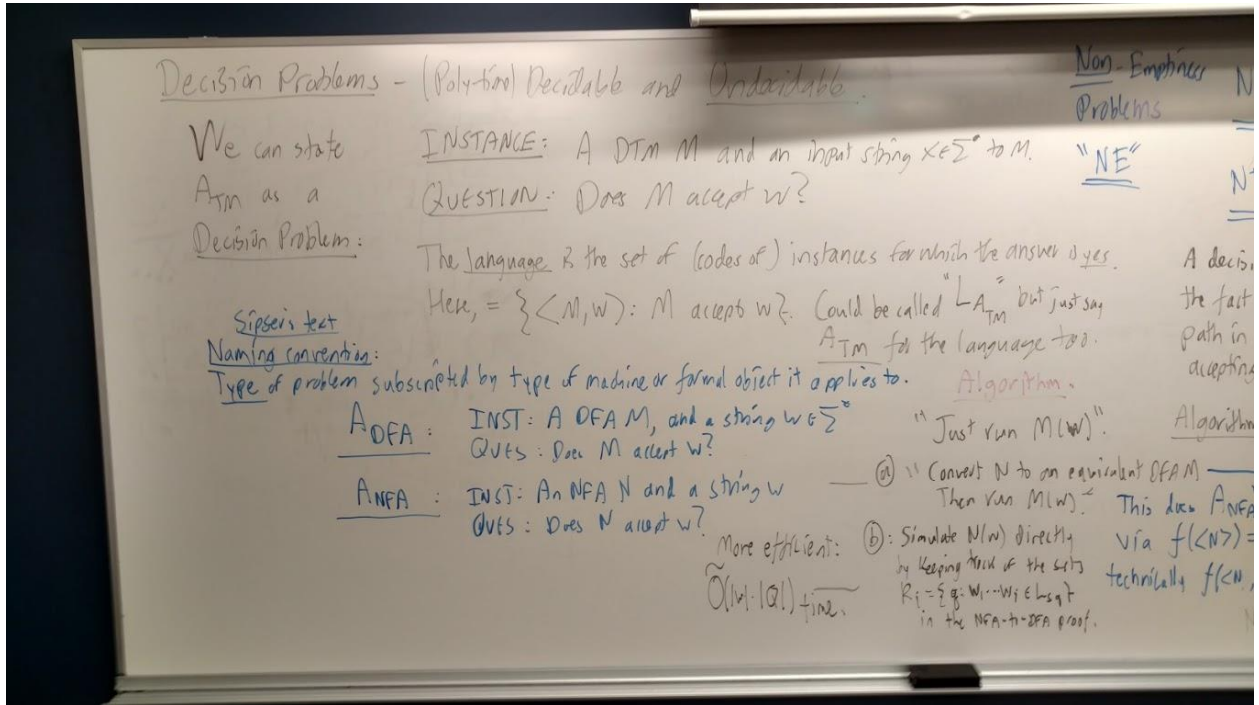 Decision Problems - (Poly-time) Decidable and Undecidable.
We can state
A_TM as a
Decision Problem:
INSTANCE: A DTM M and an input string x∈Σ* to M.
QUESTION: Does M accept w?
The language is the set of (codes of) instances for which the answer is yes.
Here, = {<M,w>: M accept w}. Could be called "L_A_TM" but just say
A_TM for the language too.
Sipser's text
Naming convention:
Type of problem subscripted by type of machine or formal object it applies to.
A_DFA: INST: A DFA M, and a string w∈Σ*
QUES: Does M accept w?
A_NFA: INST: An NFA N and a string w
QUES: Does N accept w?
Algorithm.
"Just run M(w)".
(a) "Convert N to an equivalent DFA M
Then run M(w)."
More efficient:
Õ(|w|·|Q|) time.
(b): Simulate N(w) directly
by keeping track of the sets
R_i = {q: w_1...w_i ∈ L_sq}
in the NFA-to-DFA proof.
Non-Emptiness
Problems
"NE"
N
N
A decis
the fact
path in
accepting
Algorithm
This does A_NFA
via f(<N>) =
technically f(<N,